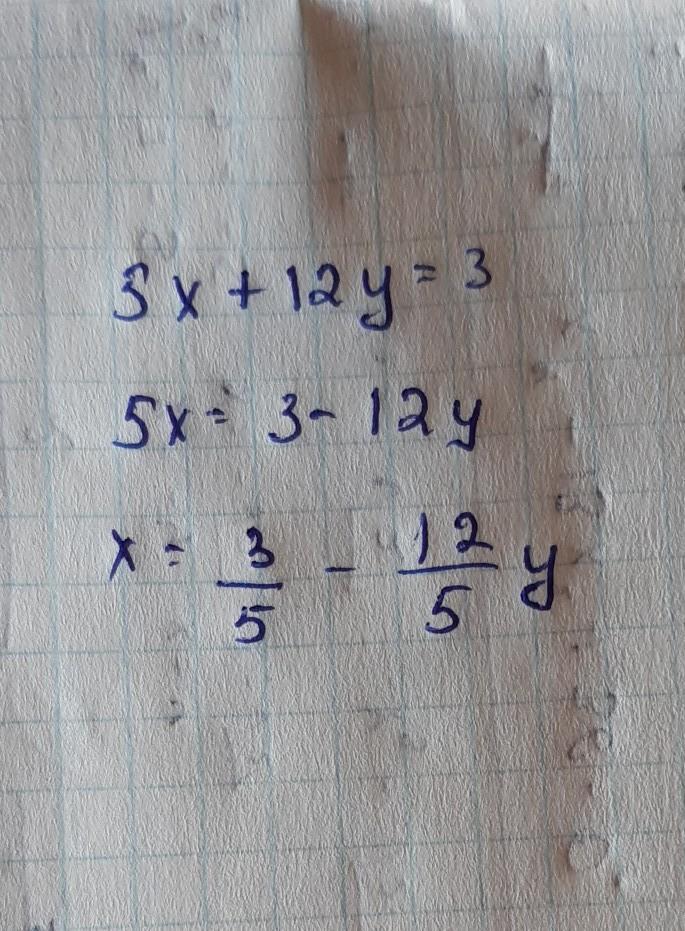 5x + 12y = 3
5x = 3 - 12y
x = 3/5 - 12/5 y